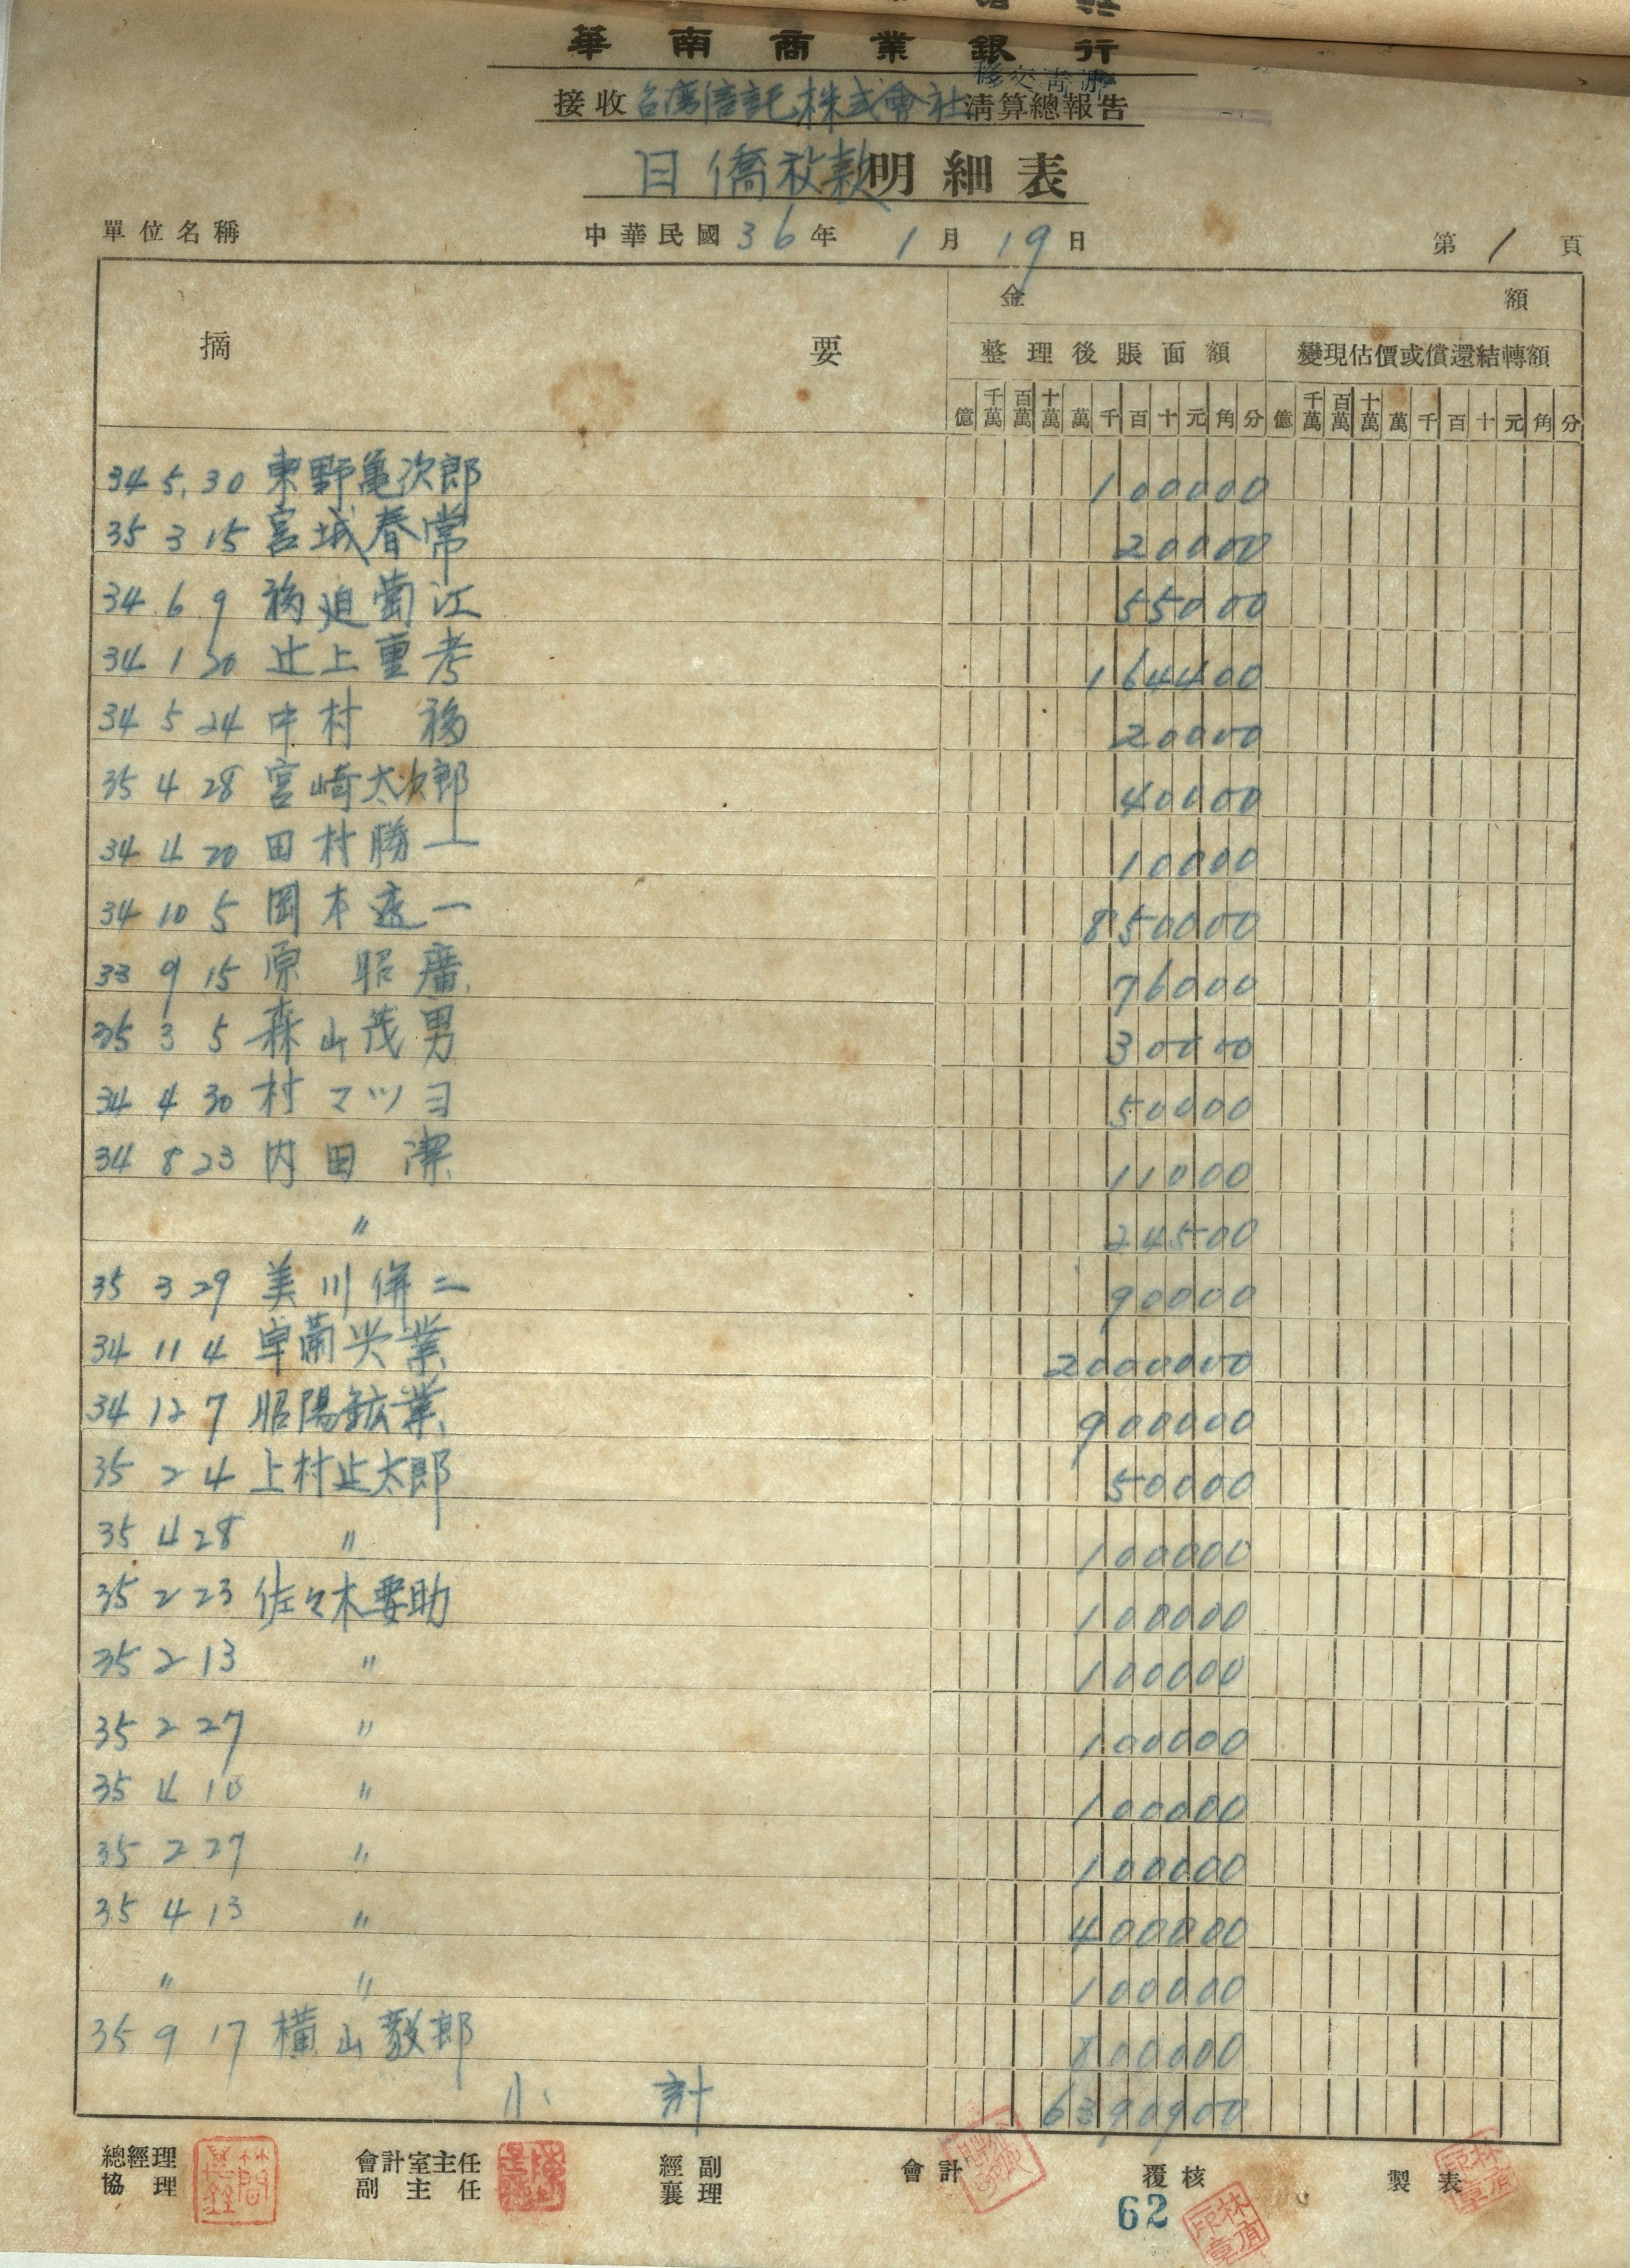 華南商業銀行
接收台灣信託株式會社清算總報告
日僑放款明細表
單位名稱 中華民國36年1月19日 第1頁
摘要 金額
整理後賬面額 變現估價或償還結轉額
億 千萬 百萬 十萬 萬 千 百 十 元 角 分 億 千萬 百萬 十萬 萬 千 百 十 元 角 分
34 5.30 東野亀次郎 100000
35 3 15 宮城春常 20000
34 6 9 福迫 江 55000
34 1 20 辻上重考 164400
34 5 24 中村 福 20000
35 4 28 宮崎太次郎 40000
34 4 20 田村勝一 10000
34 10 5 岡本 一 850000
33 9 15 原 昭廣 76000
35 3 5 森山茂男 30000
34 4 30 村マツヨ 50000
34 8 23 内田 潔 11000
〃 24500
35 3 29 美川併二 90000
34 11 4 卓蘭兴業 2000000
34 12 7 昭陽鉱業 900000
35 2 4 上村 太郎 50000
35 4 28 〃 100000
35 2 23 佐々木要助 100000
35 2 13 〃 100000
35 2 27 〃 100000
35 4 10 〃 100000
35 2 27 〃 100000
35 4 13 〃 400000
〃 〃 100000
35 9 17 横山 郎 800000
小計 6390900
總經理 會計室主任 經副 會計 覆核 製表
協理 副主任 襄理
62